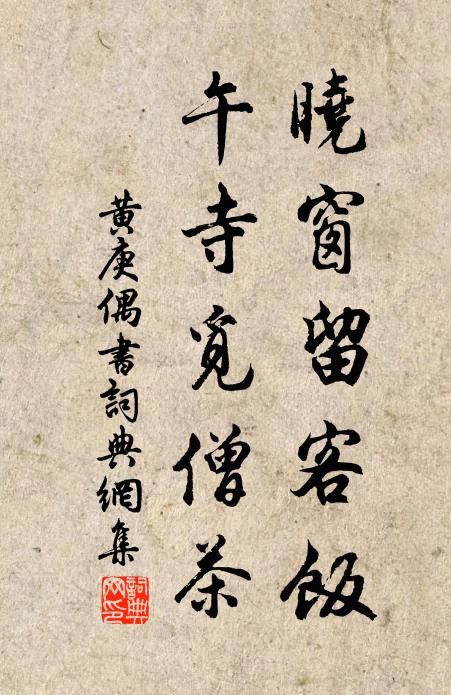 曉窗留客飯
午寺覓僧茶
黃庚偶書詞典網集
詞典網印